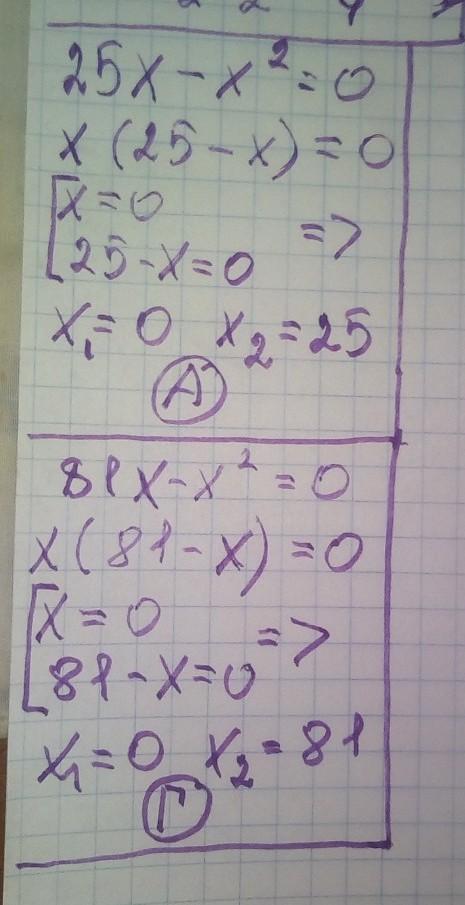 25x - x² = 0
x (25 - x) = 0
[x = 0
[25 - x = 0 =>
x₁ = 0 x₂ = 25
А
81x - x² = 0
x (81 - x) = 0
[x = 0
[81 - x = 0 =>
x₁ = 0 x₂ = 81
Г